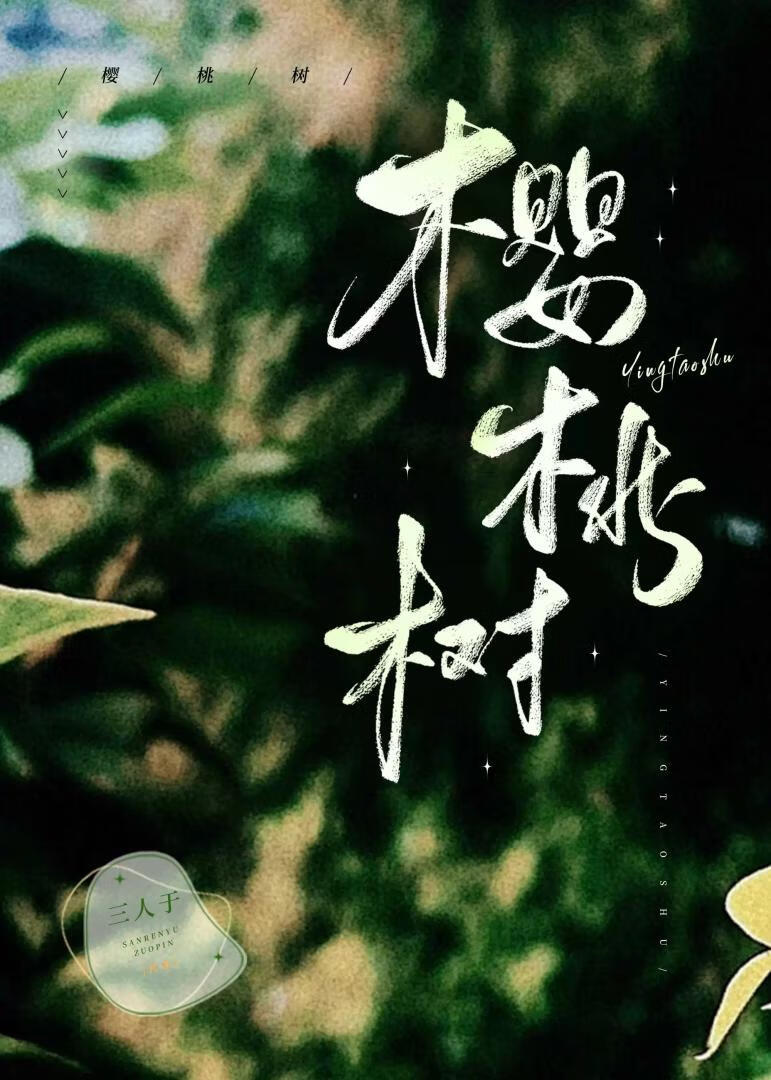 / 樱 / 桃 / 树 /
樱
Yingtaoshu
桃
树
/ Y I N G T A O S H U /
三人于
SANRENYU
ZUOPIN